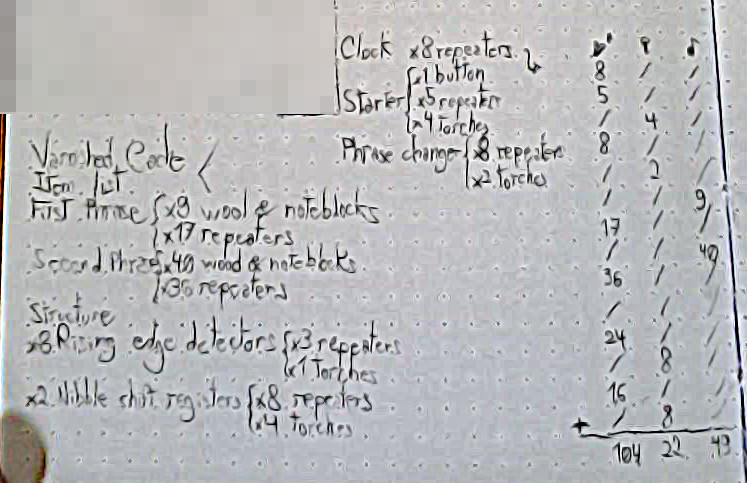 Clock x8 repeaters
x1 button
Starter { x5 repeater
x4 torches
Phrase changer { x8 repeater
x2 torches
Code
Item list
First Phrase { x9 wool & noteblocks
x17 repeaters
Second Phrase x40 wood & noteblocks
x36 repeaters
Structure
x8 Rising edge detectors { x3 repeaters
x1 Torches
x2 Nibble shift registers { x8 repeaters
x4 torches
8 / /
5 / /
/ 4 /
8 / /
/ 2 /
/ / 9
17 / /
/ / 40
36 / /
/ / /
24 / /
/ 8 /
16 / /
+ / 8 /
104 22 49